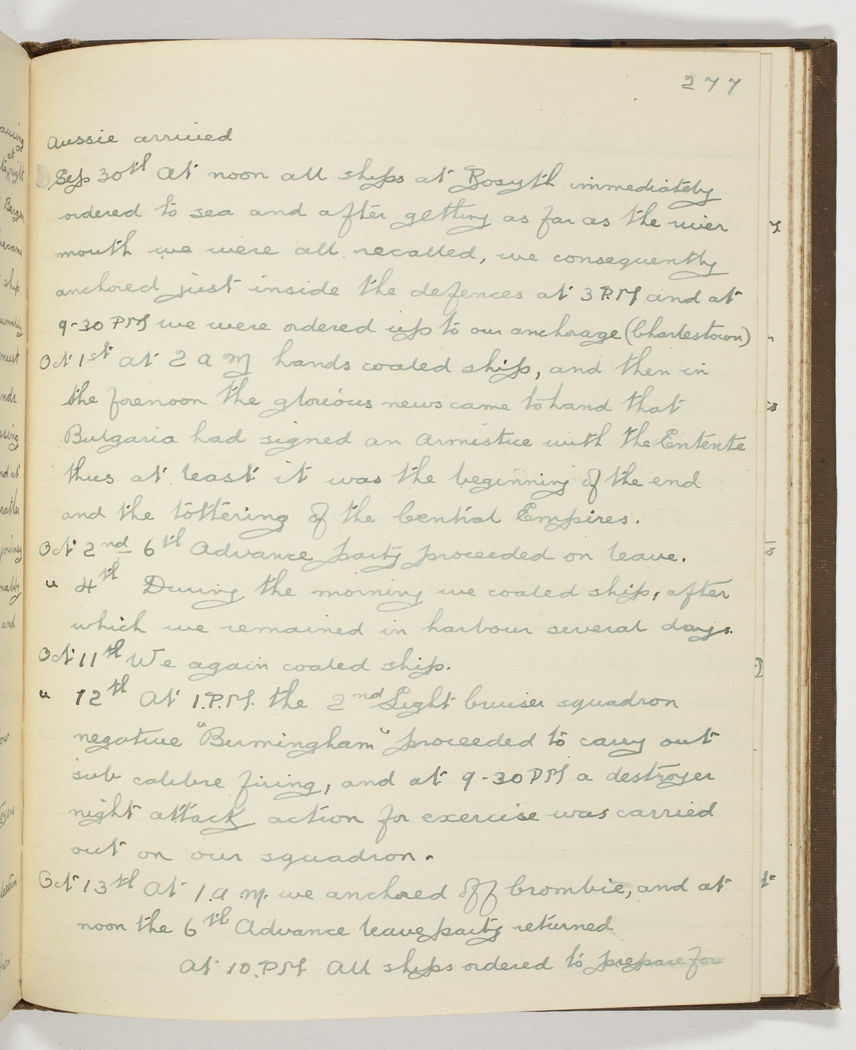 277
Aussie arrived
Sep 30th At noon all ships at Rosyth immediately
ordered to sea and after getting as far as the river
mouth we were all recalled, we consequently
anchored just inside the defences at 3 P.M and at
9-30 PM we were ordered up to our anchorage (Charlestown)
Oct 1st at 2 a m hands coaled ship, and then in
the forenoon the glorious news came to hand that
Bulgaria had signed an Armistice with the Entente
thus at least it was the beginning of the end
and the tottering of the Central Empires.
Oct 2nd 6th Advance party proceeded on leave.
" 4th During the morning we coaled ship, after
which we remained in harbour several days.
Oct 11th We again coaled ship.
" 12th At 1.P.M. the 2nd Light Cruiser squadron
negative "Birmingham" proceeded to carry out
sub calibre firing, and at 9-30 PM a destroyer
night attack action for exercise was carried
out on our squadron.
Oct 13th At 1.a m. we anchored off Crombie, and at
noon the 6th Advance leave party returned
At 10.PM All ships ordered to prepare for